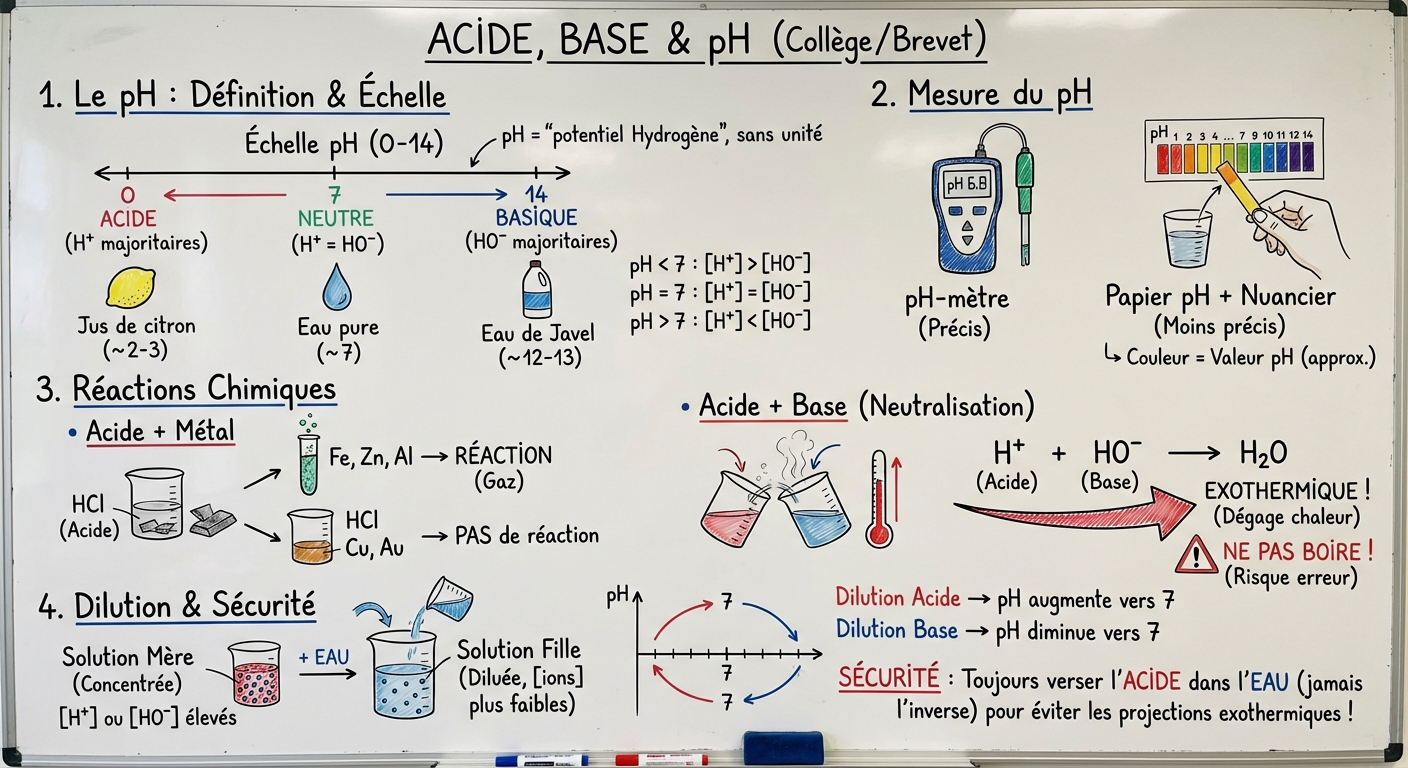 ACIDE, BASE & pH (Collège/Brevet)
1. Le pH : Définition & Échelle
Échelle pH (0-14)
pH = "potentiel Hydrogène", sans unité
0
7
14
ACIDE
NEUTRE
BASIQUE
(H⁺ majoritaires)
(H⁺ = HO⁻)
(HO⁻ majoritaires)
Jus de citron
(~2-3)
Eau pure
(~7)
Eau de Javel
(~12-13)
pH < 7 : [H⁺] > [HO⁻]
pH = 7 : [H⁺] = [HO⁻]
pH > 7 : [H⁺] < [HO⁻]
2. Mesure du pH
pH 6.8
pH-mètre
(Précis)
pH 1 2 3 4 ... 7 9 10 11 12 14
Papier pH + Nuancier
(Moins précis)
↳ Couleur = Valeur pH (approx.)
3. Réactions Chimiques
• Acide + Métal
HCl
(Acide)
Fe, Zn, Al → RÉACTION
(Gaz)
HCl
Cu, Au → PAS de réaction
• Acide + Base (Neutralisation)
H⁺ + HO⁻ → H₂O
(Acide) (Base)
EXOTHERMIQUE !
(Dégage chaleur)
NE PAS BOIRE !
(Risque erreur)
4. Dilution & Sécurité
Solution Mère
(Concentrée)
[H⁺] ou [HO⁻] élevés
+ EAU
Solution Fille
(Diluée, [ions]
plus faibles)
pH
7
7
7
Dilution Acide → pH augmente vers 7
Dilution Base → pH diminue vers 7
SÉCURITÉ : Toujours verser l'ACIDE dans l'EAU (jamais
l'inverse) pour éviter les projections exothermiques !